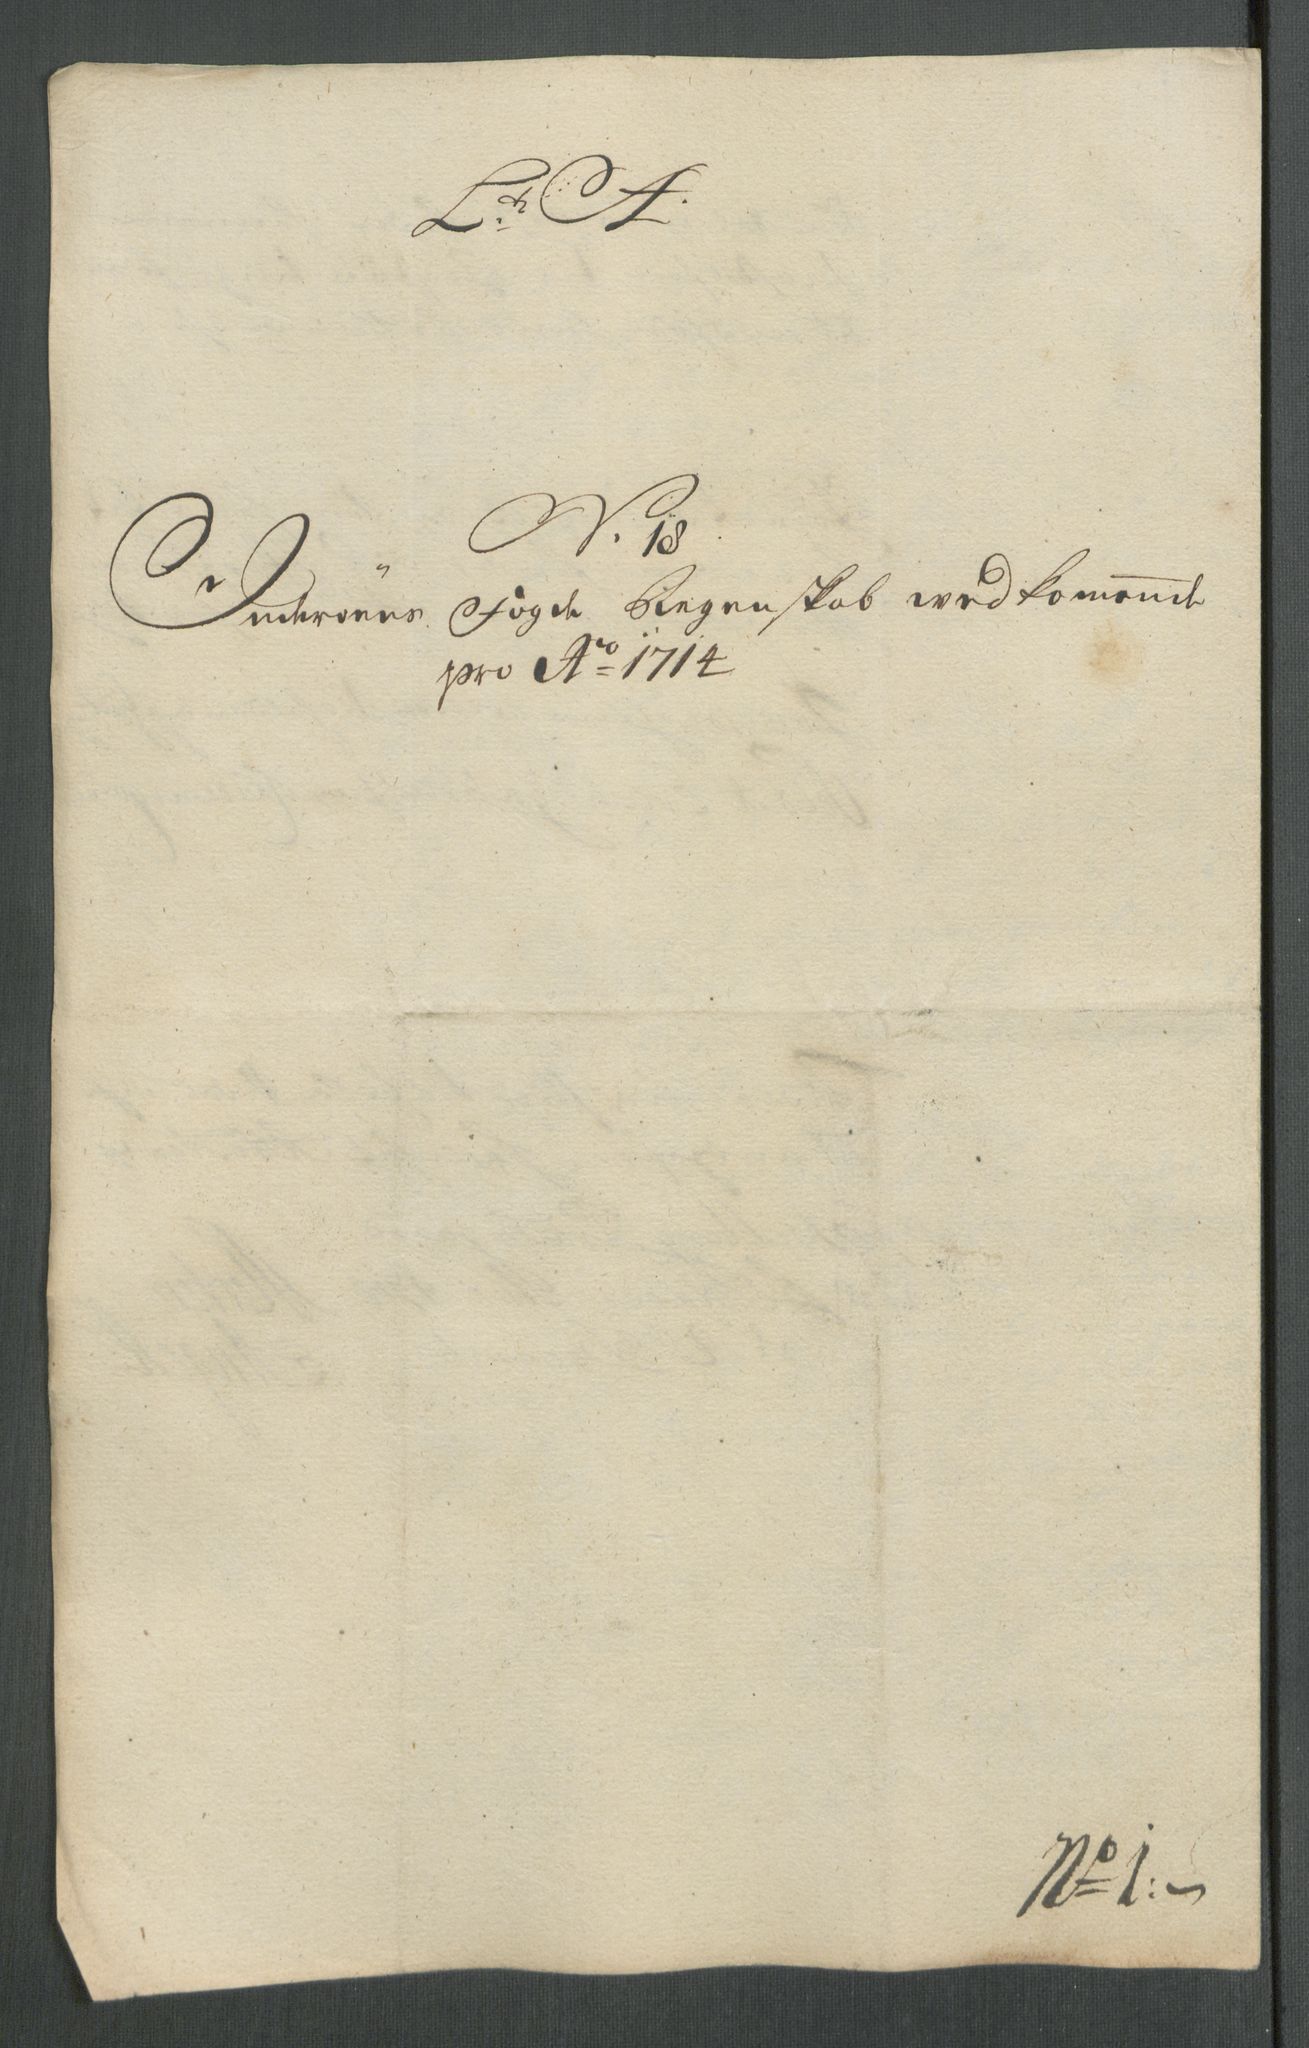 L:r A.
N. 18
Inderöens Fogde Regenskab wedkomende
pro Ao 1714
No 1: